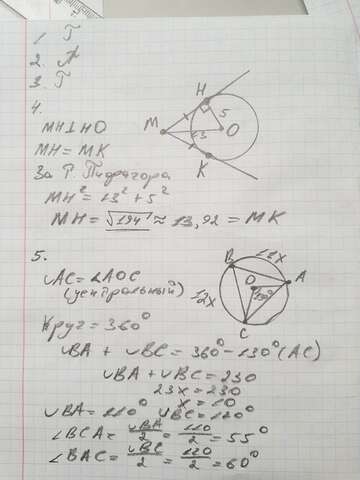 1. Г
2. А
3. Г
4.
H
5
M
13
O
K
MH⊥HO
MH = MK
За Т. Пифагора
MH² = 13² + 5²
MH = √194 ≈ 13,92 = MK
5.
B
11x
A
O
130°
12x
C
∪AC = ∠AOC
(центральный)
Круг = 360°
∪BA + ∪BC = 360° - 130° (AC)
∪BA + ∪BC = 230
23x = 230
x = 10
∪BA = 110° ∪BC = 120°
∠BCA = ∪BA/2 = 110/2 = 55°
∠BAC = ∪BC/2 = 120/2 = 60°